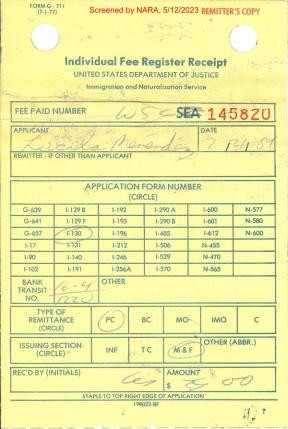 FORM G - 711
(7-1-77)
Screened by NARA, 5/12/2023
REMITTER'S COPY
Individual Fee Register Receipt
UNITED STATES DEPARTMENT OF JUSTICE
Immigration and Naturalization Service
FEE PAID NUMBER SEA 145820
APPLICANT DATE
REMITTER - IF OTHER THAN APPLICANT
APPLICATION FORM NUMBER
(CIRCLE)
G-639 I-129 B I-192 I-290 A I-600 N-577
G-641 I-129 F I-193 I-290 B I-601 N-580
G-657 I-130 I-196 I-485 I-612 N-600
I-17 I-131 I-212 I-506 N-455
I-90 I-140 I-246 I-539 N-470
I-102 I-191 I-256A I-570 N-565
BANK TRANSIT NO. OTHER
TYPE OF REMITTANCE (CIRCLE) PC BC MO IMO C
ISSUING SECTION (CIRCLE) INF T C M & F OTHER (ABBR.)
REC'D BY (INITIALS) AMOUNT
$ 35 00
STAPLE TO TOP RIGHT EDGE OF APPLICATION
198022-BF